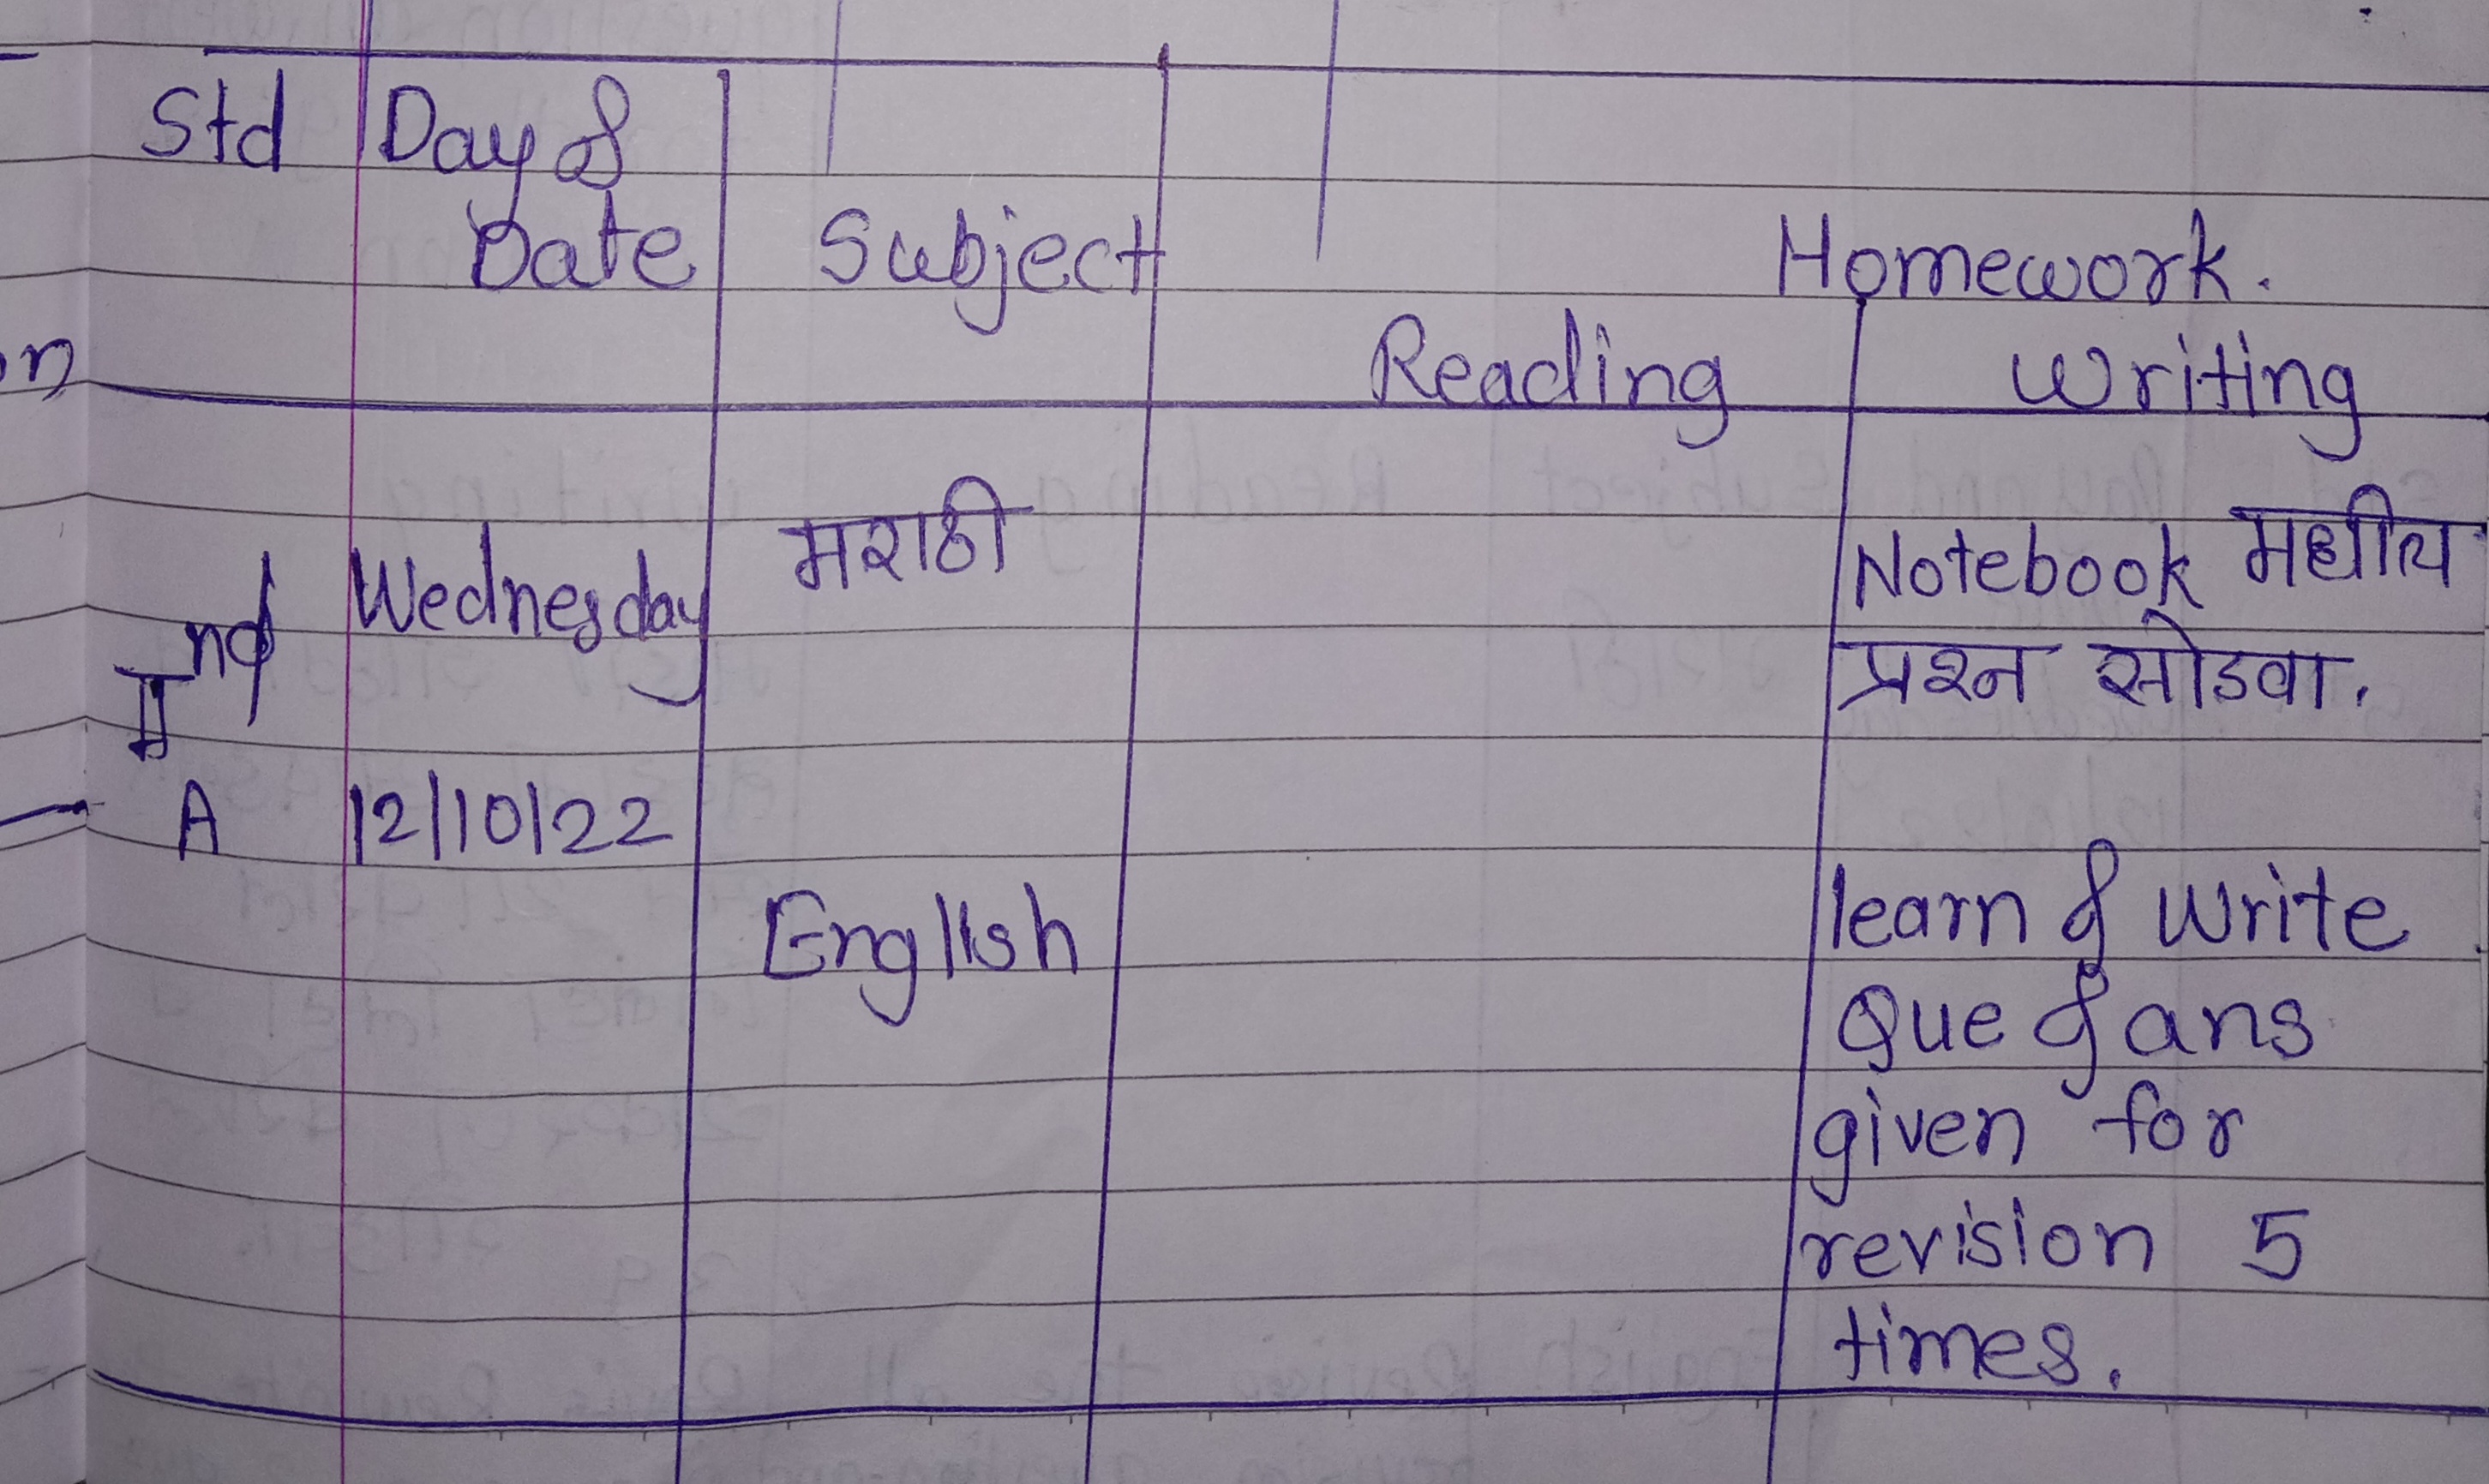 Std Day &
Date Subject Homework.
Reading Writing
Wednesday मराठी Notebook मधील
IInd प्रश्न सोडवा.
A 12/10/22
English learn & write
Que & ans
given for
revision 5
times.